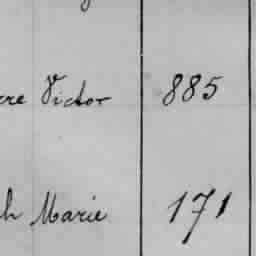 re Victor 885
h Marie 171